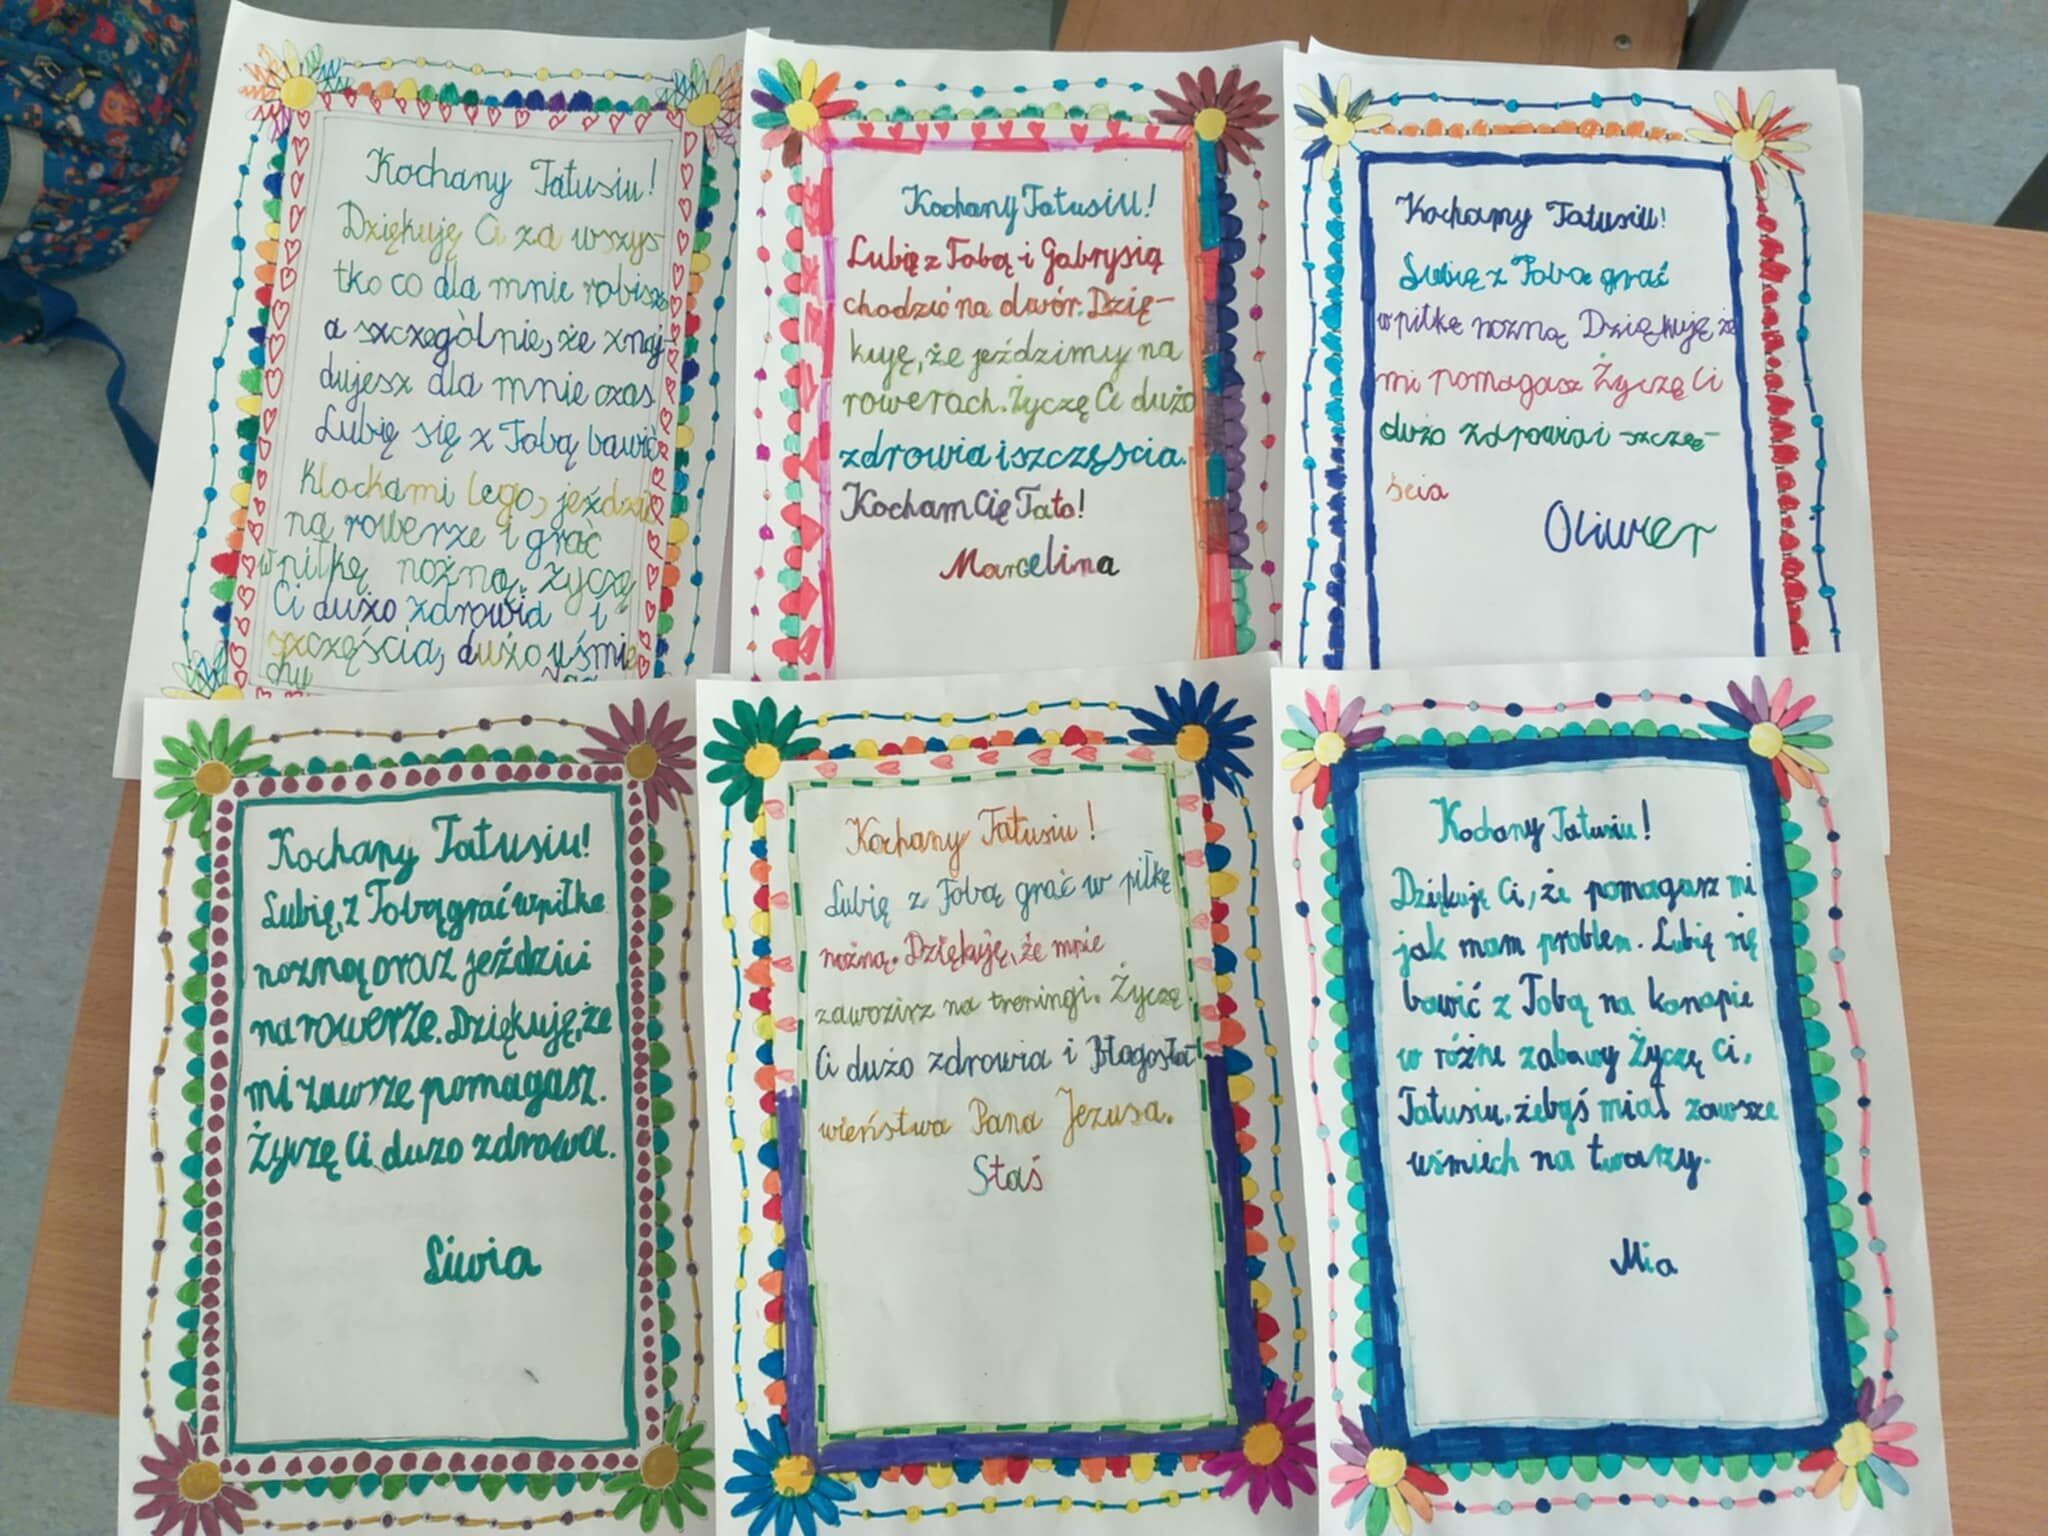 Kochany Tatusiu!
Dziękuję Ci za wszys-
tko co dla mnie robisz
a szczególnie, że znaj-
dujesz dla mnie czas.
Lubię się z Tobą bawić
klockami lego, jeździć
na rowerze i grać
w piłkę nożną. Życzę
Ci dużo zdrowia i
szczęścia, dużo uśmie
chu
Kochany Tatusiu!
Lubię z Tobą i Gabrysią
chodzić na dwór. Dzię-
kuję, że jeździmy na
rowerach. Życzę Ci dużo
zdrowia i szczęścia.
Kocham Cię Tato!
Marcelina
Kochany Tatusiu!
Lubię z Tobą grać
w piłkę nożną Dziękuję, że
mi pomagasz Życzę Ci
dużo zdrowia i szczę-
ścia
Oliwier
Kochany Tatusiu!
Lubię, z Tobą grać w piłke
nozną oraz jeździci
na rowerze. Dziękuję, że
mi zawsze pomagasz.
Życzę Ci dużo zdrowa.
Liwia
Kochany Tatusiu!
Lubię z Tobą grać w piłkę
nożną. Dziękuję, że mnie
zawozisz na treningi. Życzę
Ci dużo zdrowia i Błagosła
wieństwa Pana Jezusa.
Staś
Kochany Tatusiu!
Dziękuję Ci, że pomagasz mi
jak mam problem. Lubię się
bawić z Tobą na kanapie
w różne zabawy Życzę Ci,
Tatusiu, żebyś miał zawsze
uśmiech na twarzy.
Mia